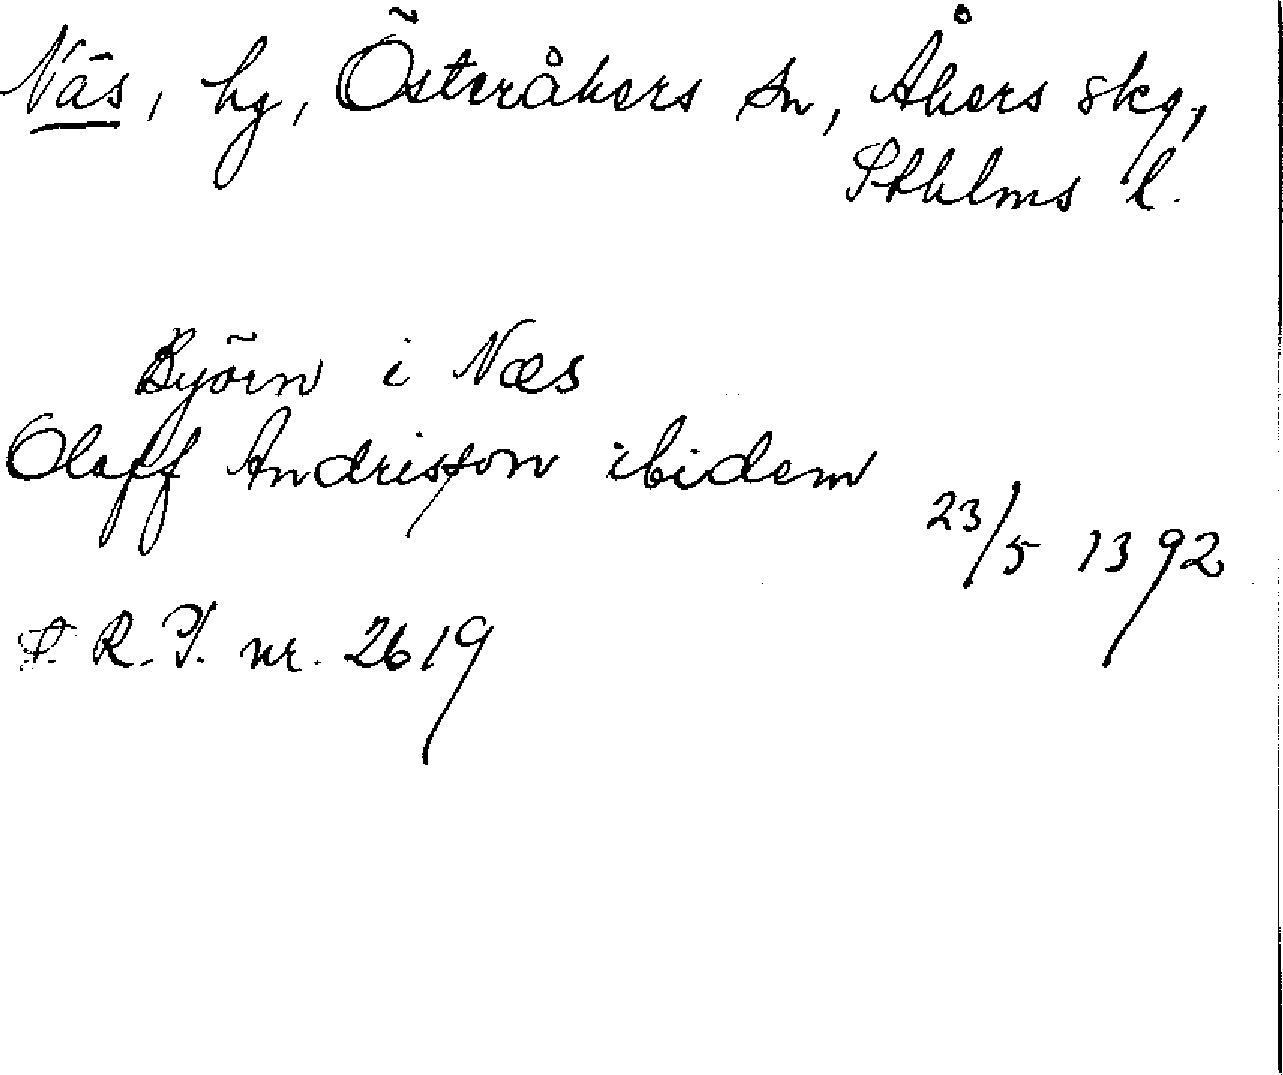 Näs, hg, Österåkers sn, Åkers skg,
Sthlms l.
Björn i Næs
Olaff Andrisson ibidem
23/5 1392
S. R. P. nr. 2619